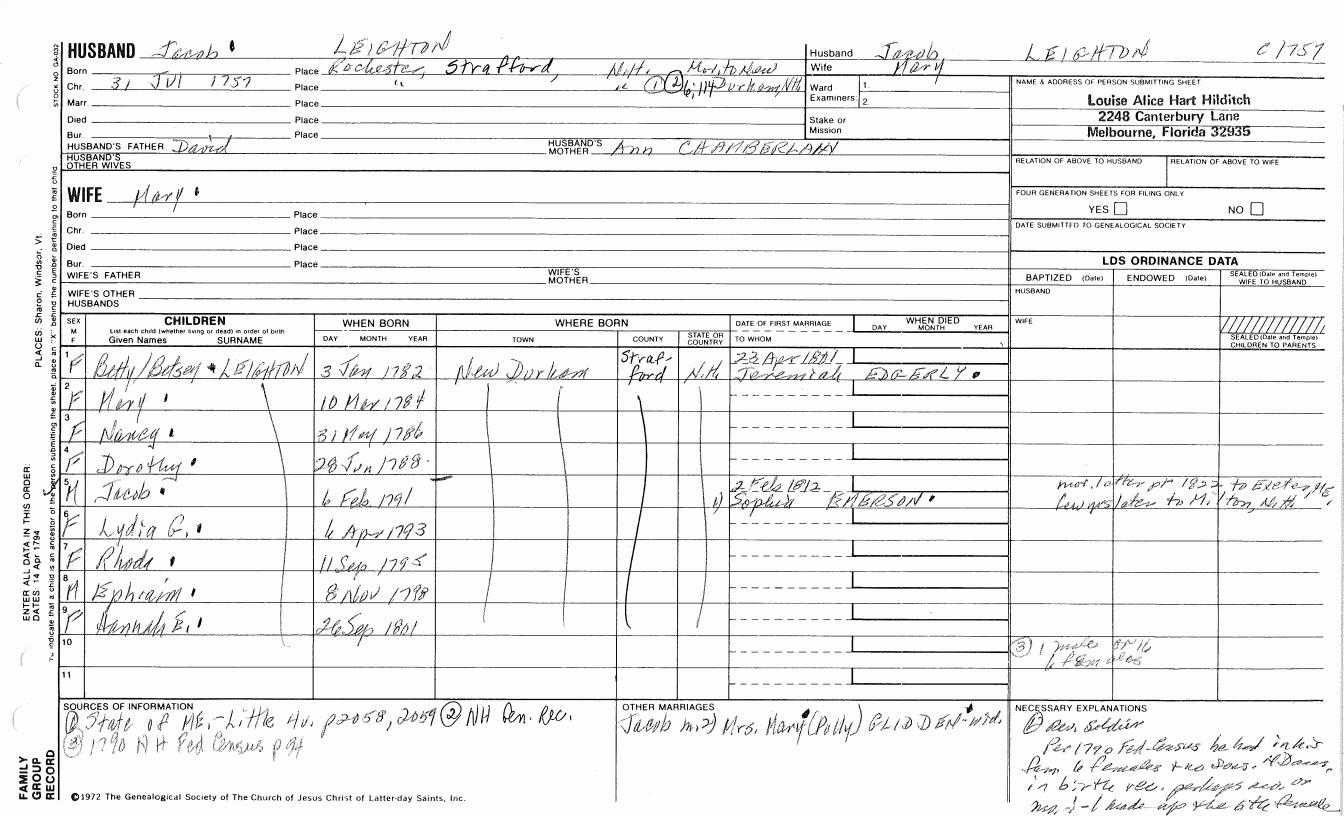 HUSBAND Jacob LEIGHTON
Born Place Rochester, Strafford, N.H. Mov. to New
Chr. 31 JUl 1757 Place " " ① ② 6:114 Durham, NH
Marr Place
Died Place
Bur. Place
HUSBAND'S FATHER David HUSBAND'S MOTHER Ann CHAMBERLAIN
HUSBAND'S OTHER WIVES
WIFE Mary
Born Place
Chr. Place
Died Place
Bur. Place
WIFE'S FATHER WIFE'S MOTHER
WIFE'S OTHER HUSBANDS
Husband Jacob LEIGHTON C 1757
Wife Mary
Ward 1.
Examiners 2.
Stake or Mission
NAME & ADDRESS OF PERSON SUBMITTING SHEET
Louise Alice Hart Hilditch
2248 Canterbury Lane
Melbourne, Florida 32935
RELATION OF ABOVE TO HUSBAND RELATION OF ABOVE TO WIFE
FOUR GENERATION SHEETS FOR FILING ONLY
YES NO
DATE SUBMITTED TO GENEALOGICAL SOCIETY
LDS ORDINANCE DATA
BAPTIZED (Date) ENDOWED (Date) SEALED (Date and Temple) WIFE TO HUSBAND
HUSBAND
WIFE
SEALED (Date and Temple) CHILDREN TO PARENTS
SEX M F
CHILDREN
List each child (whether living or dead) in order of birth
Given Names SURNAME
WHEN BORN
DAY MONTH YEAR
WHERE BORN
TOWN COUNTY STATE OR COUNTRY
DATE OF FIRST MARRIAGE
TO WHOM
WHEN DIED
DAY MONTH YEAR
1 F Betty/Betsey LEIGHTON 3 Jan 1782 New Durham Strafford N.H. 23 Apr 1801
Jeremiah EDGERLY
2 F Mary 10 Mar 1784
3 F Nancy 31 May 1786
4 F Dorothy 28 Jun 1788
5 M Jacob 6 Feb 1791 2 Feb 1812
1) Sophia EMERSON
mov. latter pt 1822 to Exeter, ME
few yrs later to Milton, N.H.
6 F Lydia G. 6 Apr 1793
7 F Rhoda 11 Sep 1795
8 M Ephraim 8 Nov 1798
9 F Hannah E. 26 Sep 1801
10
③ 1 male ov 16
6 females
11
SOURCES OF INFORMATION
① State of ME.-Little 4v. p2058, 2059 ② NH Gen. Rec.
③ 1790 NH Fed Census p 94
OTHER MARRIAGES
Jacob m. 2) Mrs. Mary (Polly) GLIDDEN-wid.
NECESSARY EXPLANATIONS
① Rev. Soldier
Per 1790 Fed-Census he had in his
fam. 6 females & no sons.
in birth rec. perhaps
made up the 6th female
©1972 The Genealogical Society of The Church of Jesus Christ of Latter-day Saints, Inc.
FAMILY
GROUP
RECORD
ENTER ALL DATA IN THIS ORDER:
DATES: 14 Apr 1794
PLACES: Sharon, Windsor, Vt
To indicate that a child is an ancestor of the person submitting the sheet, place an "X" behind the number pertaining to that child
STOCK NO. GA-032